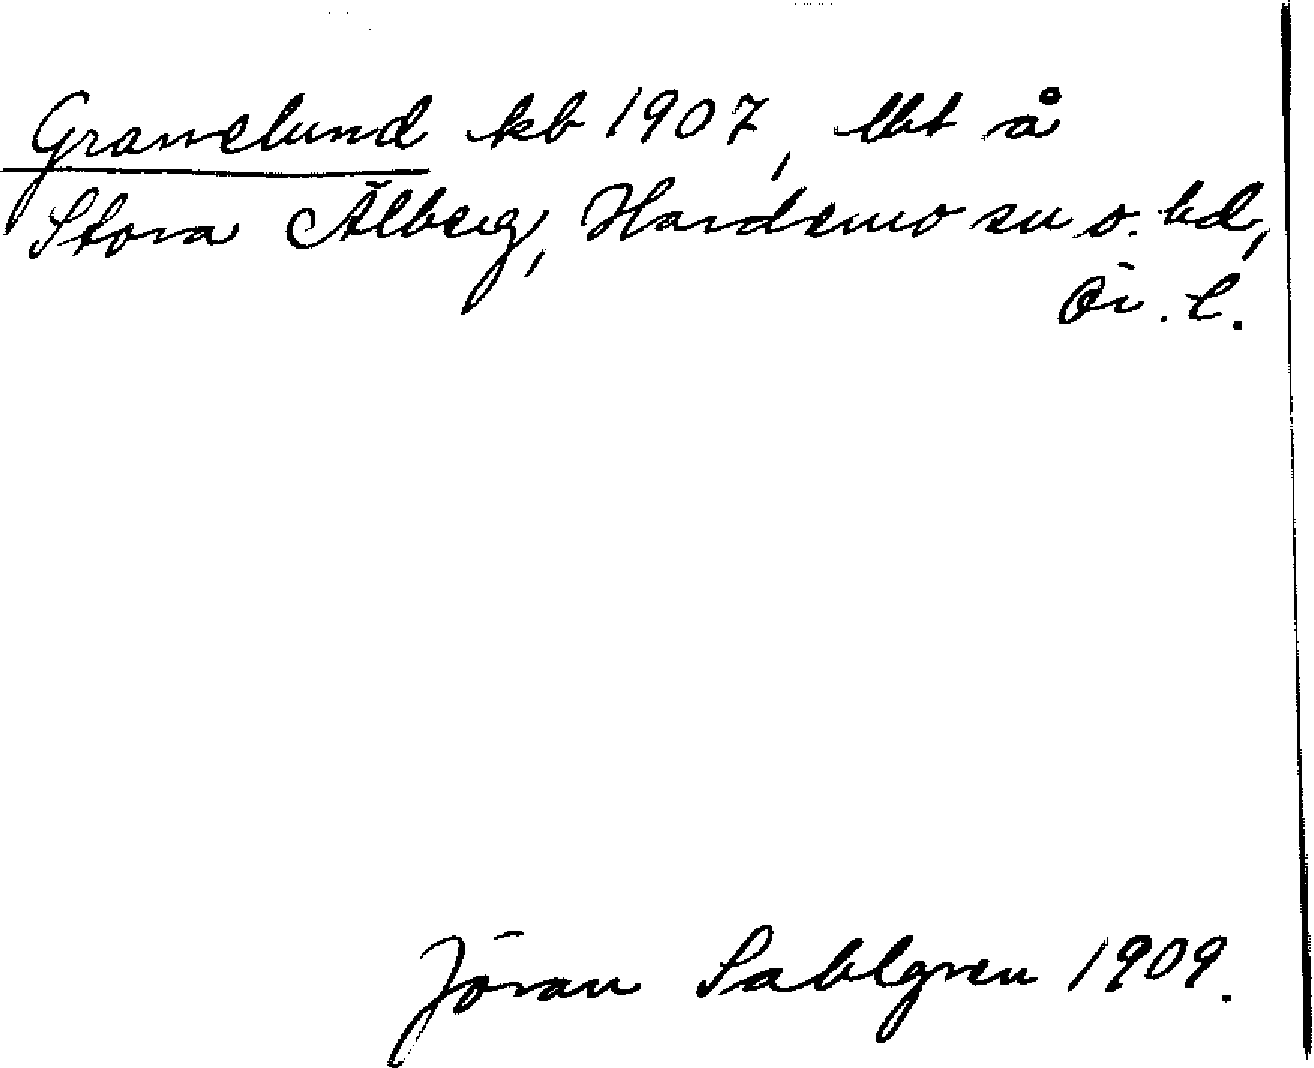 Granelund kb 1907, lht å
Stora Älberg, Hardemo sn o. hd,
Ör. l.
Jöran Sahlgren 1909.